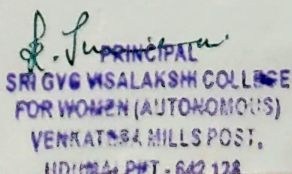 PRINCIPAL
SRI GVG VISALAKSHI COLLEGE
FOR WOMEN (AUTONOMOUS)
VENKATESA MILLS POST,
UDUMALPET - 642 128